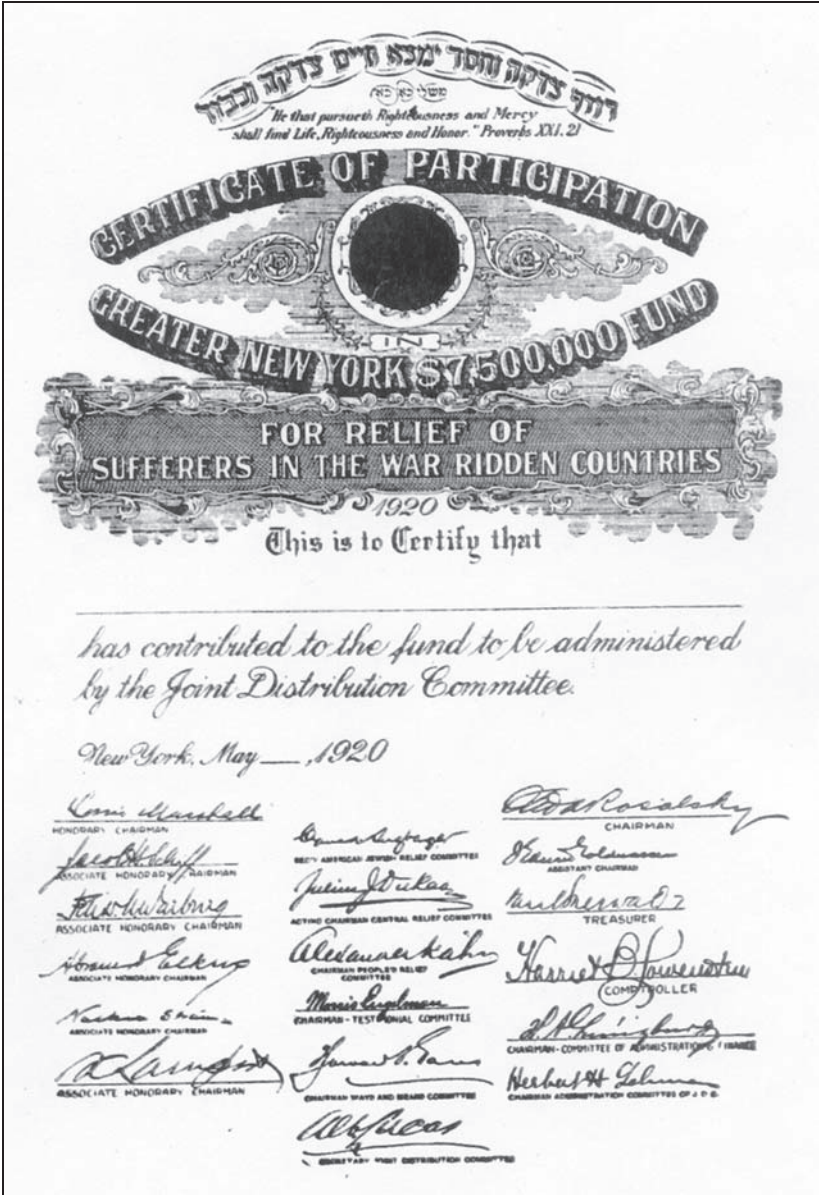 רודף צדקה וחסד ימצא חיים צדקה וכבוד
משלי כא כא
"He that pursueth Righteousness and Mercy
shall find Life, Righteousness and Honor." Proverbs XXI. 21
CERTIFICATE OF PARTICIPATION
IN
GREATER NEW YORK $7,500,000 FUND
FOR RELIEF OF
SUFFERERS IN THE WAR RIDDEN COUNTRIES
1920
This is to Certify that
has contributed to the fund to be administered
by the Joint Distribution Committee.
New York, May ___, 1920
Louis Marshall
HONORARY CHAIRMAN
Jacob H. Schiff
ASSOCIATE HONORARY CHAIRMAN
Felix M. Warburg
ASSOCIATE HONORARY CHAIRMAN
Abram I. Elkus
ASSOCIATE HONORARY CHAIRMAN
Nathan Straus
ASSOCIATE HONORARY CHAIRMAN
ASSOCIATE HONORARY CHAIRMAN
SEC'Y AMERICAN JEWISH RELIEF COMMITTEE
Julius J. Dukas
ACTING CHAIRMAN CENTRAL RELIEF COMMITTEE
Alexander Kahn
CHAIRMAN PEOPLE'S RELIEF
COMMITTEE
Morris Engelman
CHAIRMAN - TESTIMONIAL COMMITTEE
CHAIRMAN WAYS AND MEANS COMMITTEE
Alb Lucas
SECRETARY JOINT DISTRIBUTION COMMITTEE
Rosalsky
CHAIRMAN
ASSISTANT CHAIRMAN
TREASURER
Harriet B. Lowenstein
COMPTROLLER
CHAIRMAN - COMMITTEE OF ADMINISTRATION & FINANCE
Herbert H Lehman
CHAIRMAN ADMINISTRATION COMMITTEE OF J. D. C.